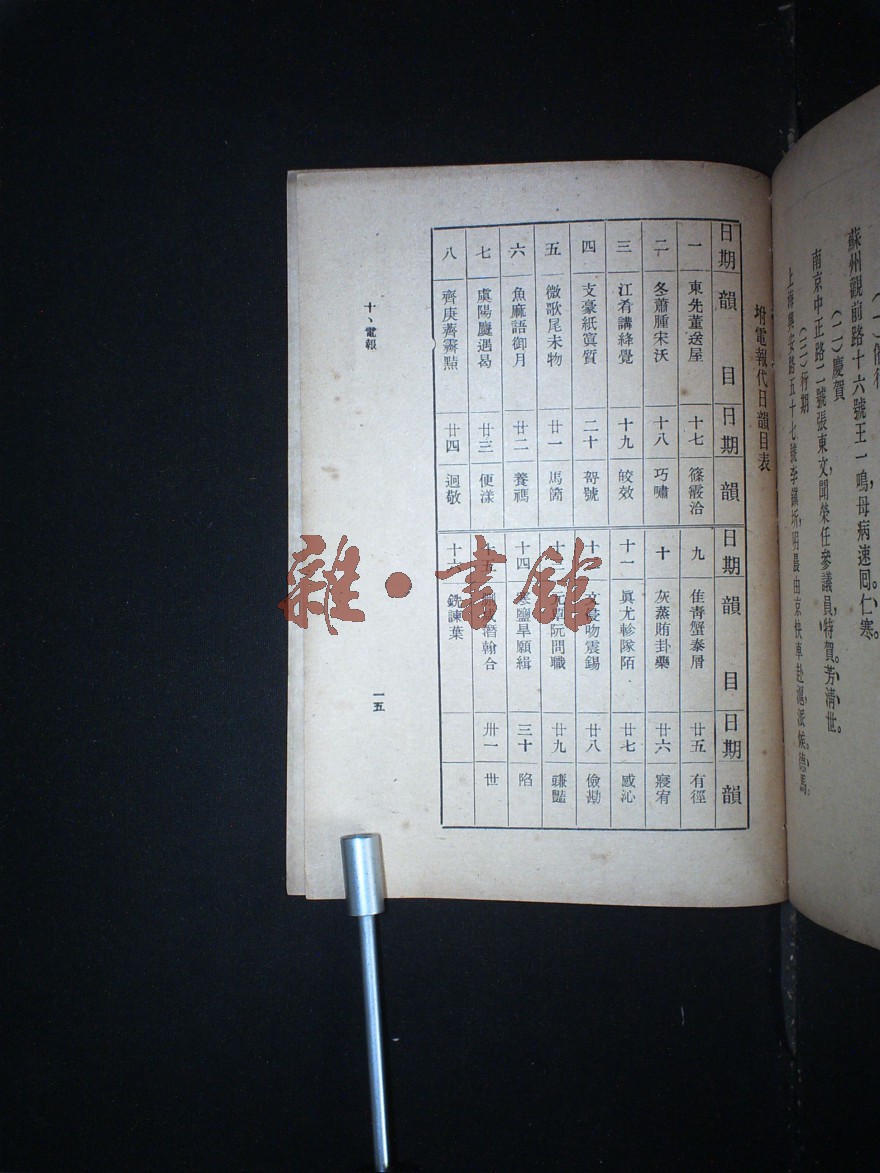 蘇州觀前路十六號王一鳴，母病速回。仁寒。
（二）慶賀
南京中正路二號張東文，聞榮任參議員，特賀。芳清世。
（三）行期
坿電報代日韻目表
日期 韻目 日期 韻 日期 韻目 日期 韻
一 東先董送屋 十七 篠霰洽 九 佳青蟹泰屑 廿五 有徑
二 冬蕭腫宋沃 十八 巧嘯 十 灰蒸賄卦藥 廿六 寢宥
三 江肴講絳覺 十九 皎效 十一 眞尤軫隊陌 廿七 感沁
四 支豪紙寘質 二十 哿號 侵吻震錫 廿八 儉勘
五 微歌尾未物 廿一 馬箇 阮問職 廿九 豏豔
六 魚麻語御月 廿二 養禡 十四 寒鹽旱願緝 三十 陷
七 虞陽麌遇曷 廿三 便漾 十五 潸翰合 卅一 世
八 齊庚薺霽黠 廿四 迥敬 十六 銑諫葉
十、電報
一五
雜·書館